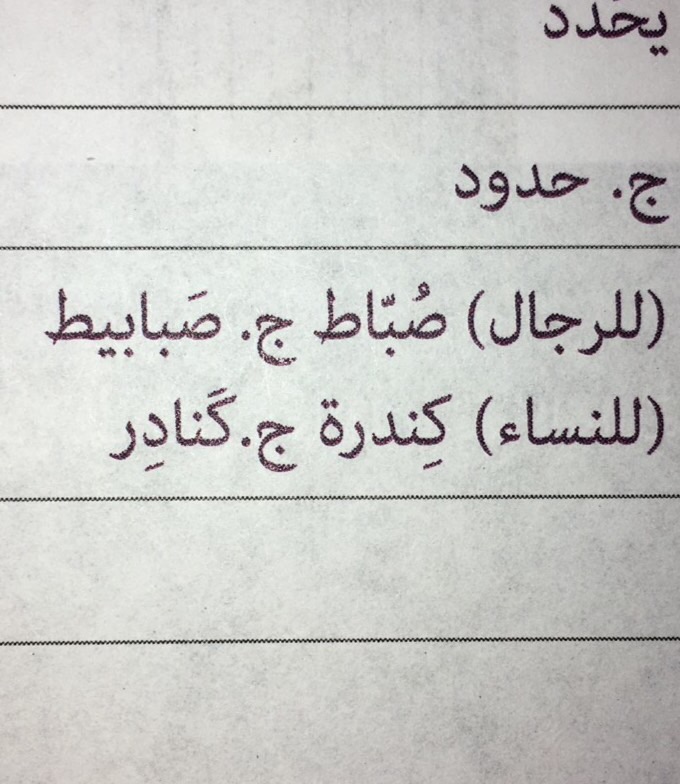 يحَدد
ج. حدود
(للرجال) صُبّاط ج. صَبابيط
(للنساء) كِندرة ج.كَنادِر